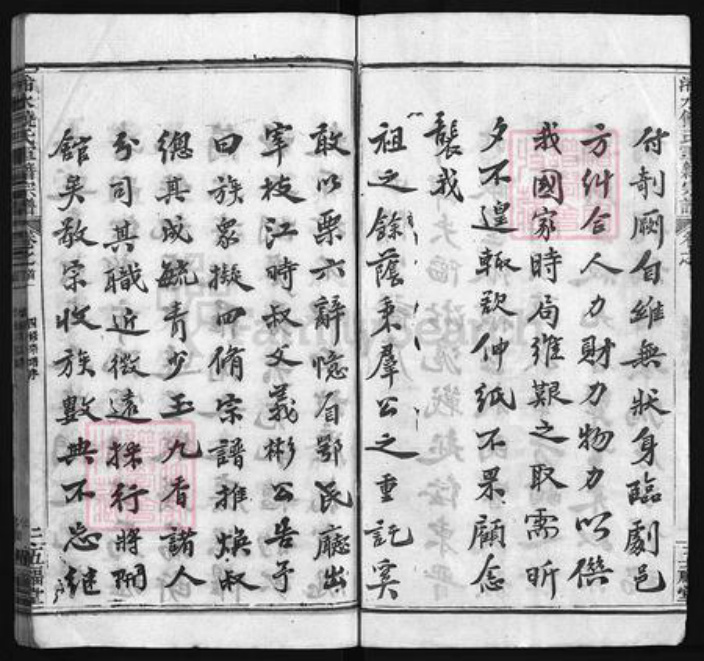 付剞劂自維無狀身臨劇邑
方糾合人力財力物力以僯
我國家時局維艱之取需昕
夕不遑輒欲伸紙不果顧念
襲我
祖之餘蔭秉羣公之重託奚
敢以栗六辭憶眉鄂民廳出
宰枝江時叔父義彬公告予
曰族衆擬四脩宗譜推煥叔
總其成毓青少玉九香諸人
分司其職近徵遠採行將開
館矣敬宗收族數典不忘繼
五福堂